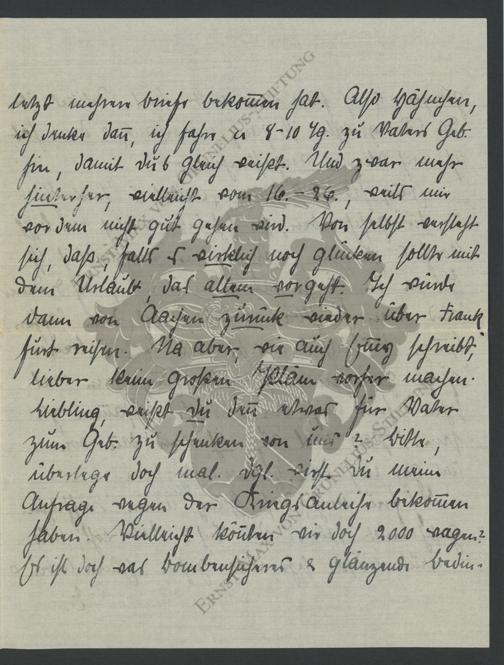 letzt mehrere briefe bekom̅en hat. Also Hähnchen,
ich denke dan̅, ich fahre 8-10 Tg. zu Vaters Geb.
hin, damit du's gleich weißt. Und zwar mehr
hinterher, vielleicht vom 16.-26., weils mir
vordem nicht gut gehen wird. Von selbst versteht
sich, daß, falls es wirklich noch glücken sollte mit
dem Urlaub, das allem vorgeht. Ich würde
dann von Aachen zurück wieder über Frank
furt reisen. Na aber, wie auch schreibst,
lieber keine großen Pläne vorher machen.
Liebling, weißt Du den̅ etwas für Vater
zum Geb. zu schenken von uns? Bitte,
überlege doch mal. Vgl. wirst Du meine
Anfrage wegen der Kriegsanleihe bekom̅en
haben. Vielleicht kön̅ten wir doch 2000 wagen?
Es ist doch was Bombensicheres & glänzende Bedin-
ERNST MAX VON GRUNELIUS-STIFTUNG
ERNST MAX VON GRUNELIUS-STIFTUNG